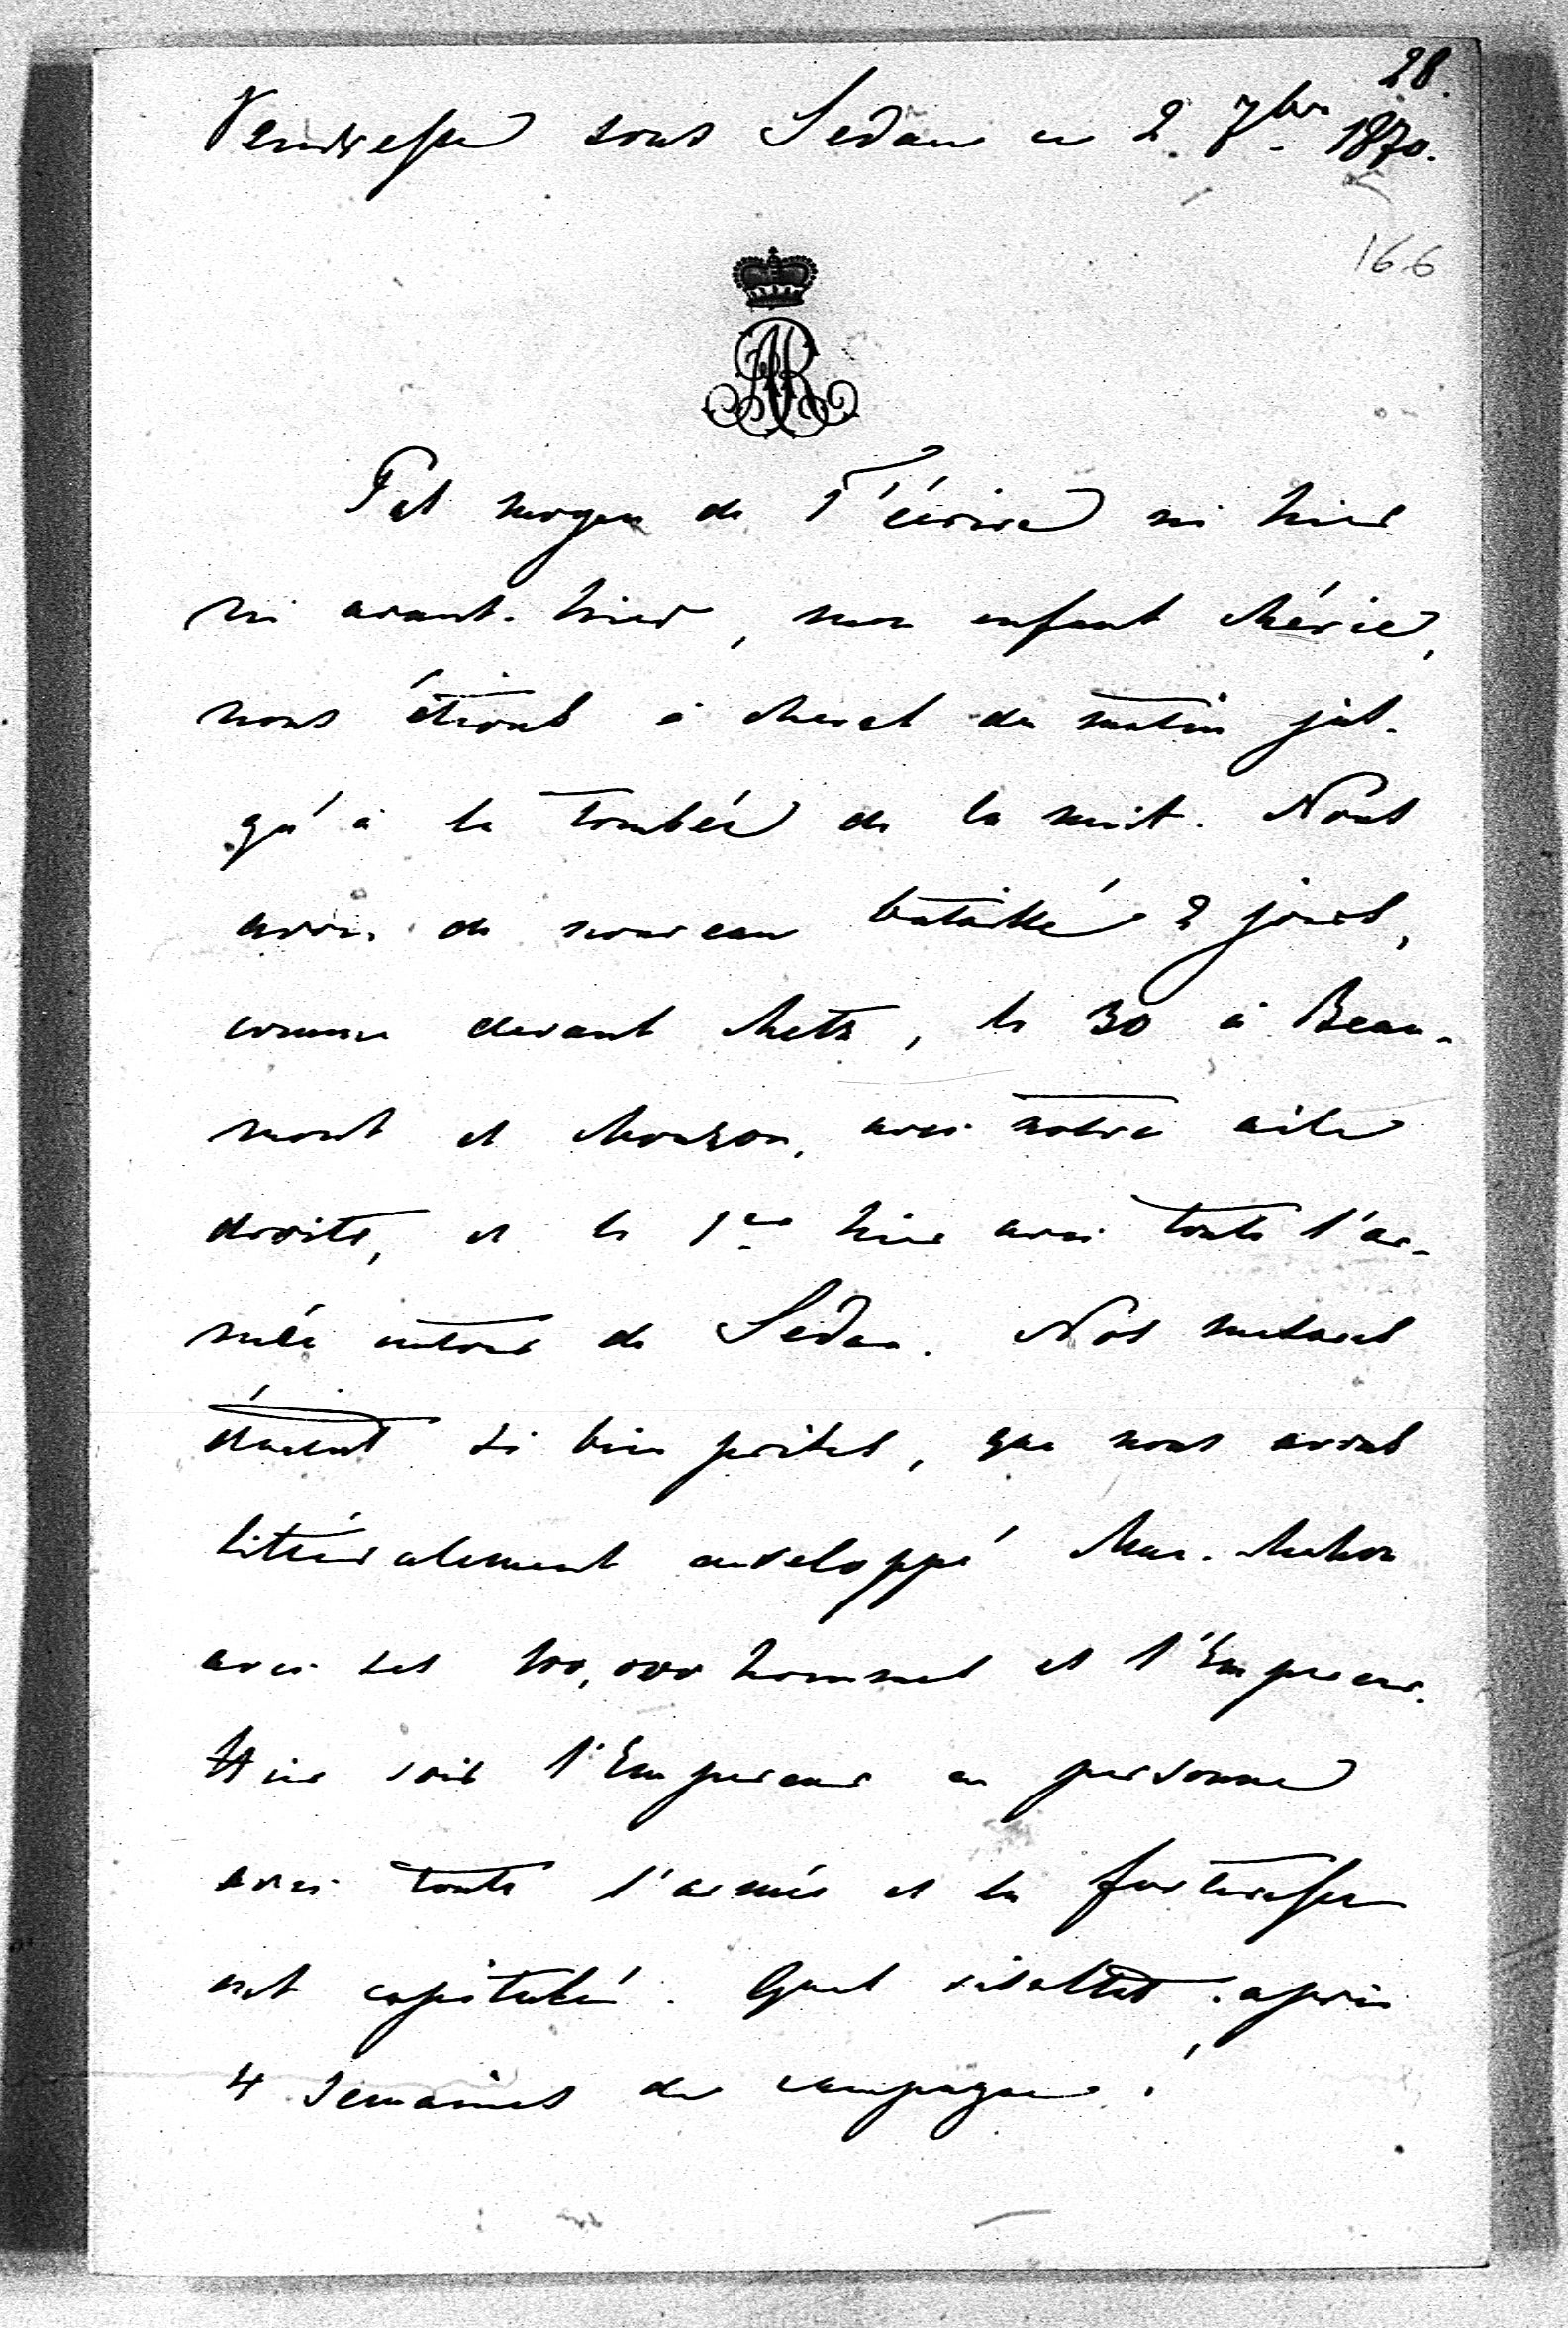 28.
Vendresse sous Sedan ce 2. 7bre 1870.
166
AR
Pas moyen de T'écrire ni hier
ni avant-hier, mon enfant chérie,
nous étions à cheval du matin jus-
qu'à la tombée de la nuit. Nous
avons de nouveau bataillé 2 jours,
comme devant Metz, le 30 à Beau-
mont et Mouzon, avec notre aile
droite, et le 1er hier avec toute l'ar-
mée autour de Sedan. Nos mesures
étaient si bien prises, que nous avons
litéralement enveloppé Mac-Mahon
avec ses 100,000 hommes et l'Empereur.
Hier soir l'Empereur en personne
avec toute l'armée et la forteresse
ont capitulé. Quel résultat, après
4 semaines de campagne!